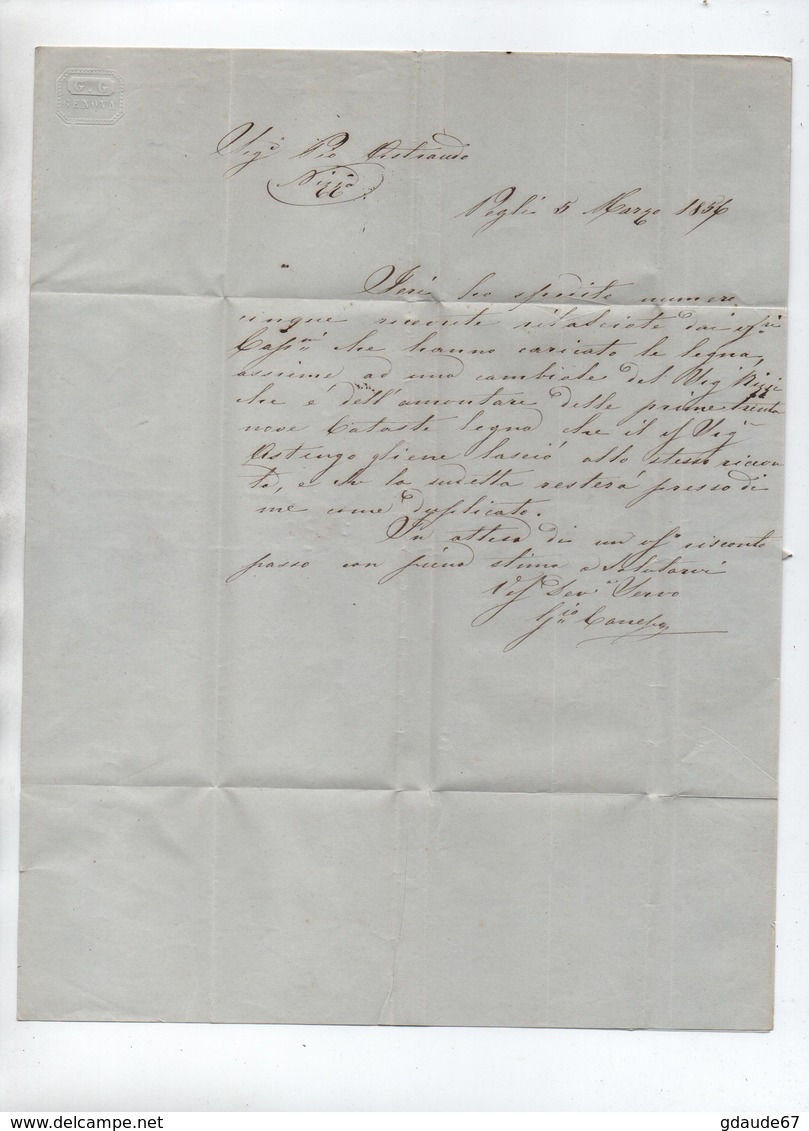 G. G
GENOVA
Sig.r Pio Astraudo
Nizza
Pegli 5 Marzo 1856
Ieri ho spedito numero
cinque ricevute rilasciate dai
Cap.ni che hanno caricato le legna,
assieme ad una cambiale del Sig.r
che è dell'amontare delle prime trenta
nove Cataste legna che il Sig.r
Astengo gliene lasciò allo stesso riscon
to, e la sudetta resterà presso di
me come duplicato.
In attesa di un riscontro
passo con piena stima a salutarvi
Dev.o Servo
Canepa
gdaude67